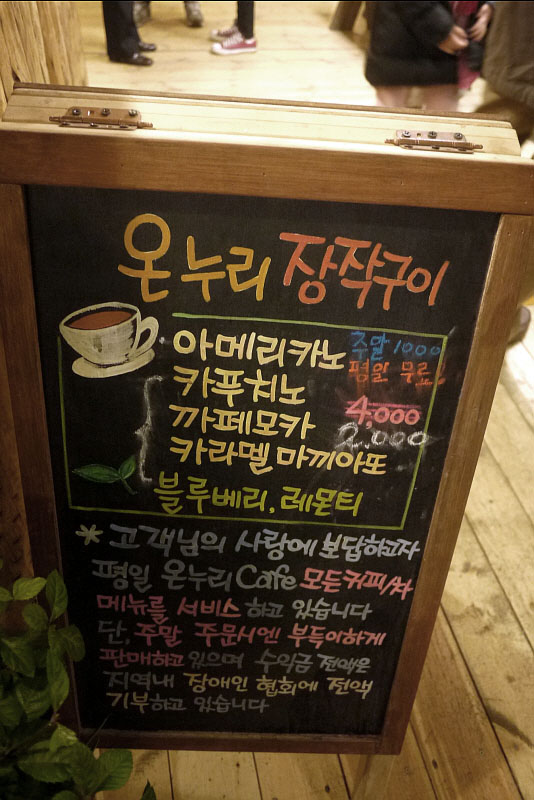 온누리 장작구이
아메리카노 주말 1000
평일 무료
카푸치노
까페모카 4,000
2,000
카라멜 마끼아또
블루베리, 레몬티
* 고객님의 사랑에 보답하고자
평일 온누리 Cafe 모든커피/차
메뉴를 서비스 하고 있습니다
단, 주말 주문시엔 부득이하게
판매하고 있으며 수익금 전액은
지역내 장애인 협회에 전액
기부하고 있습니다